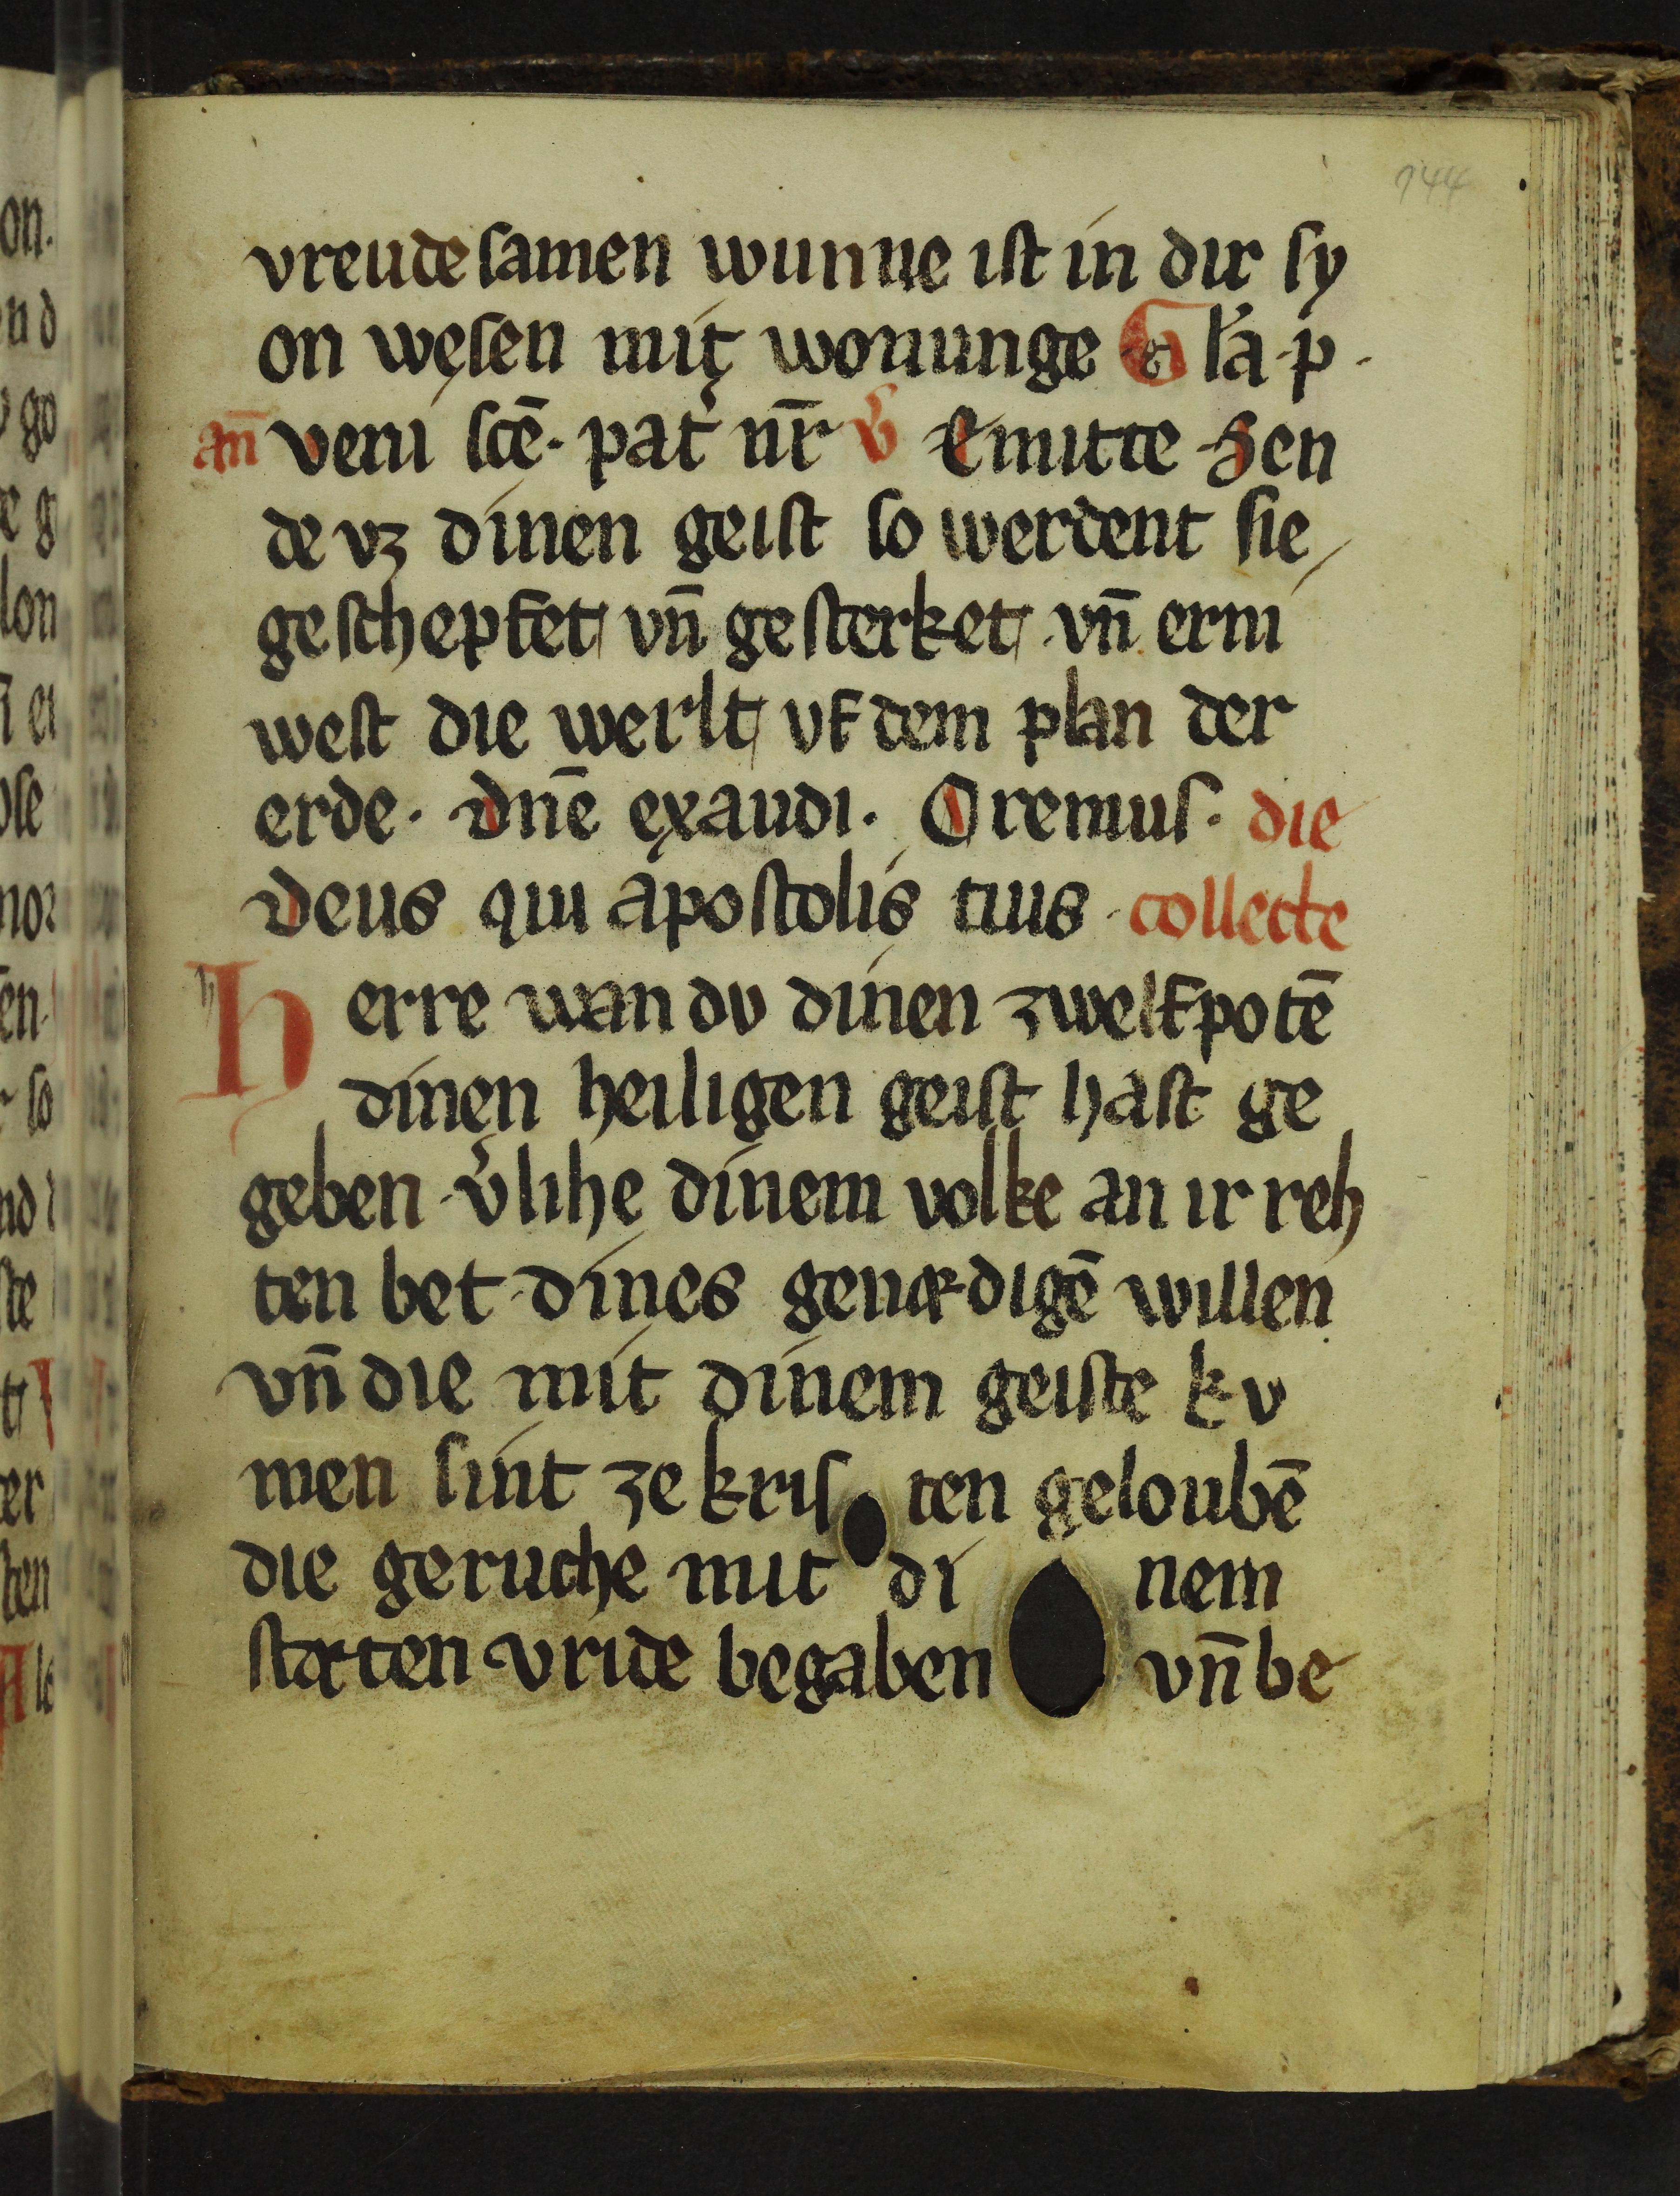 144
vreude samen wunne ist in dir sy
on wesen mit wonunge Gla p̄.
an̄ veni sc̄e. pat̓ nr̄ v̓ Emitte Sen
de vz dinen geist so werdent sie
geschepfet vn̄ gesterket. vn̄ erni
west die werlt vf dem plan der
erde. dn̄e exaudi. Oremus. die
deus qui apostolis tuis collecte
Herre wan dv dinen zwelfpotē
dinen heiligen geist hast ge
geben v̓lihe dinem volke an ir reh
ten bet dines genædigē willen
vn̄ die mit dinem geiste kv
men sint ze kris ten geloubē
die geruche mit di nem
stæten vride begaben vn̄ be